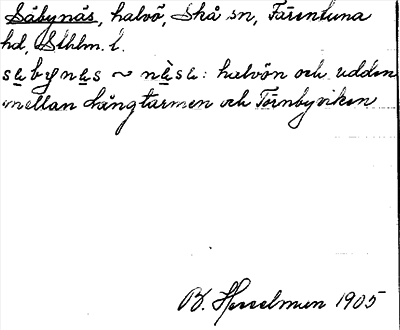 Säbynäs, halvö, Skå sn, Färentuna
hd, Sthlm. l.
sębynęs ~ nę̀sɛ: halvön och udden
mellan Långtarmen och Törnbyviken
B. Hesselman 1905